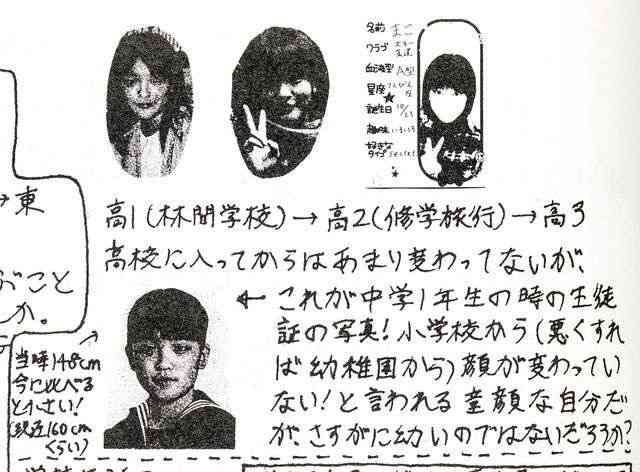 名前 まこ
クラブ
血液型 A型
星座 てんびん座
誕生日 10/23
趣味 いろいろ
好きな
タイプ
→東
高1(林間学校)→高2(修学旅行)→高3
高校に入ってからはあまり変わってないが、
ぶこと
か。
← これが中学1年生の時の生徒
証の写真!小学校から(悪くすれ
ば幼稚園から)顔が変わってい
ない!と言われる童顔な自分だ
が、さすがに幼いのではないだろうか?
当時148cm
今に比べる
と小さい!
(現在160cm
くらい)